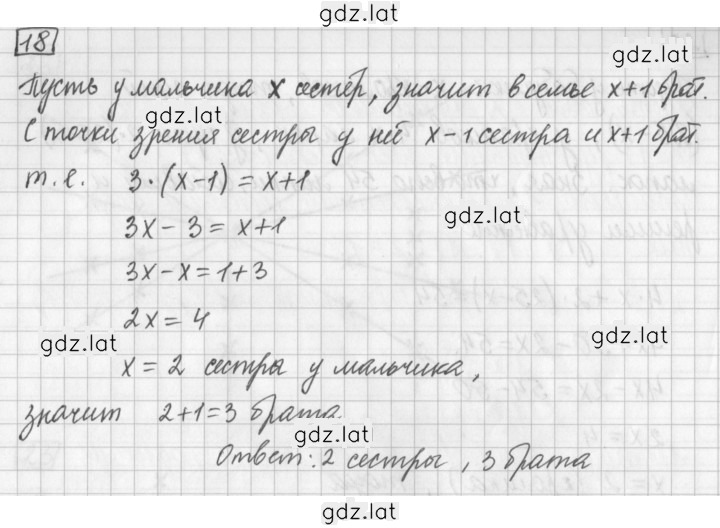 gdz.lat
18
gdz.lat
Пусть у мальчика x сестёр, значит в семье x+1 брат.
gdz.lat
С точки зрения сестры у неё x-1 сестра и x+1 брат.
т.е. 3·(x-1) = x+1
gdz.lat
3x - 3 = x+1
3x - x = 1+3
2x = 4
gdz.lat
gdz.lat
x = 2 сестры у мальчика,
значит 2+1=3 брата.
gdz.lat
Ответ: 2 сестры, 3 брата
gdz.lat